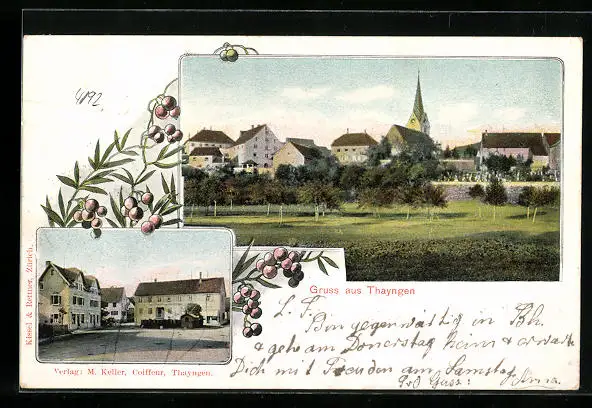 4892
Gruss aus Thayngen
Kissel & Rettner, Zürich.
Verlag: M. Keller, Coiffeur, Thayngen.
L. F.
Bin gegenwärtig in Bh.
& gehe am Donnerstag heim & erwarte
Dich mit Freuden am Samstag
Gruss: Anna.